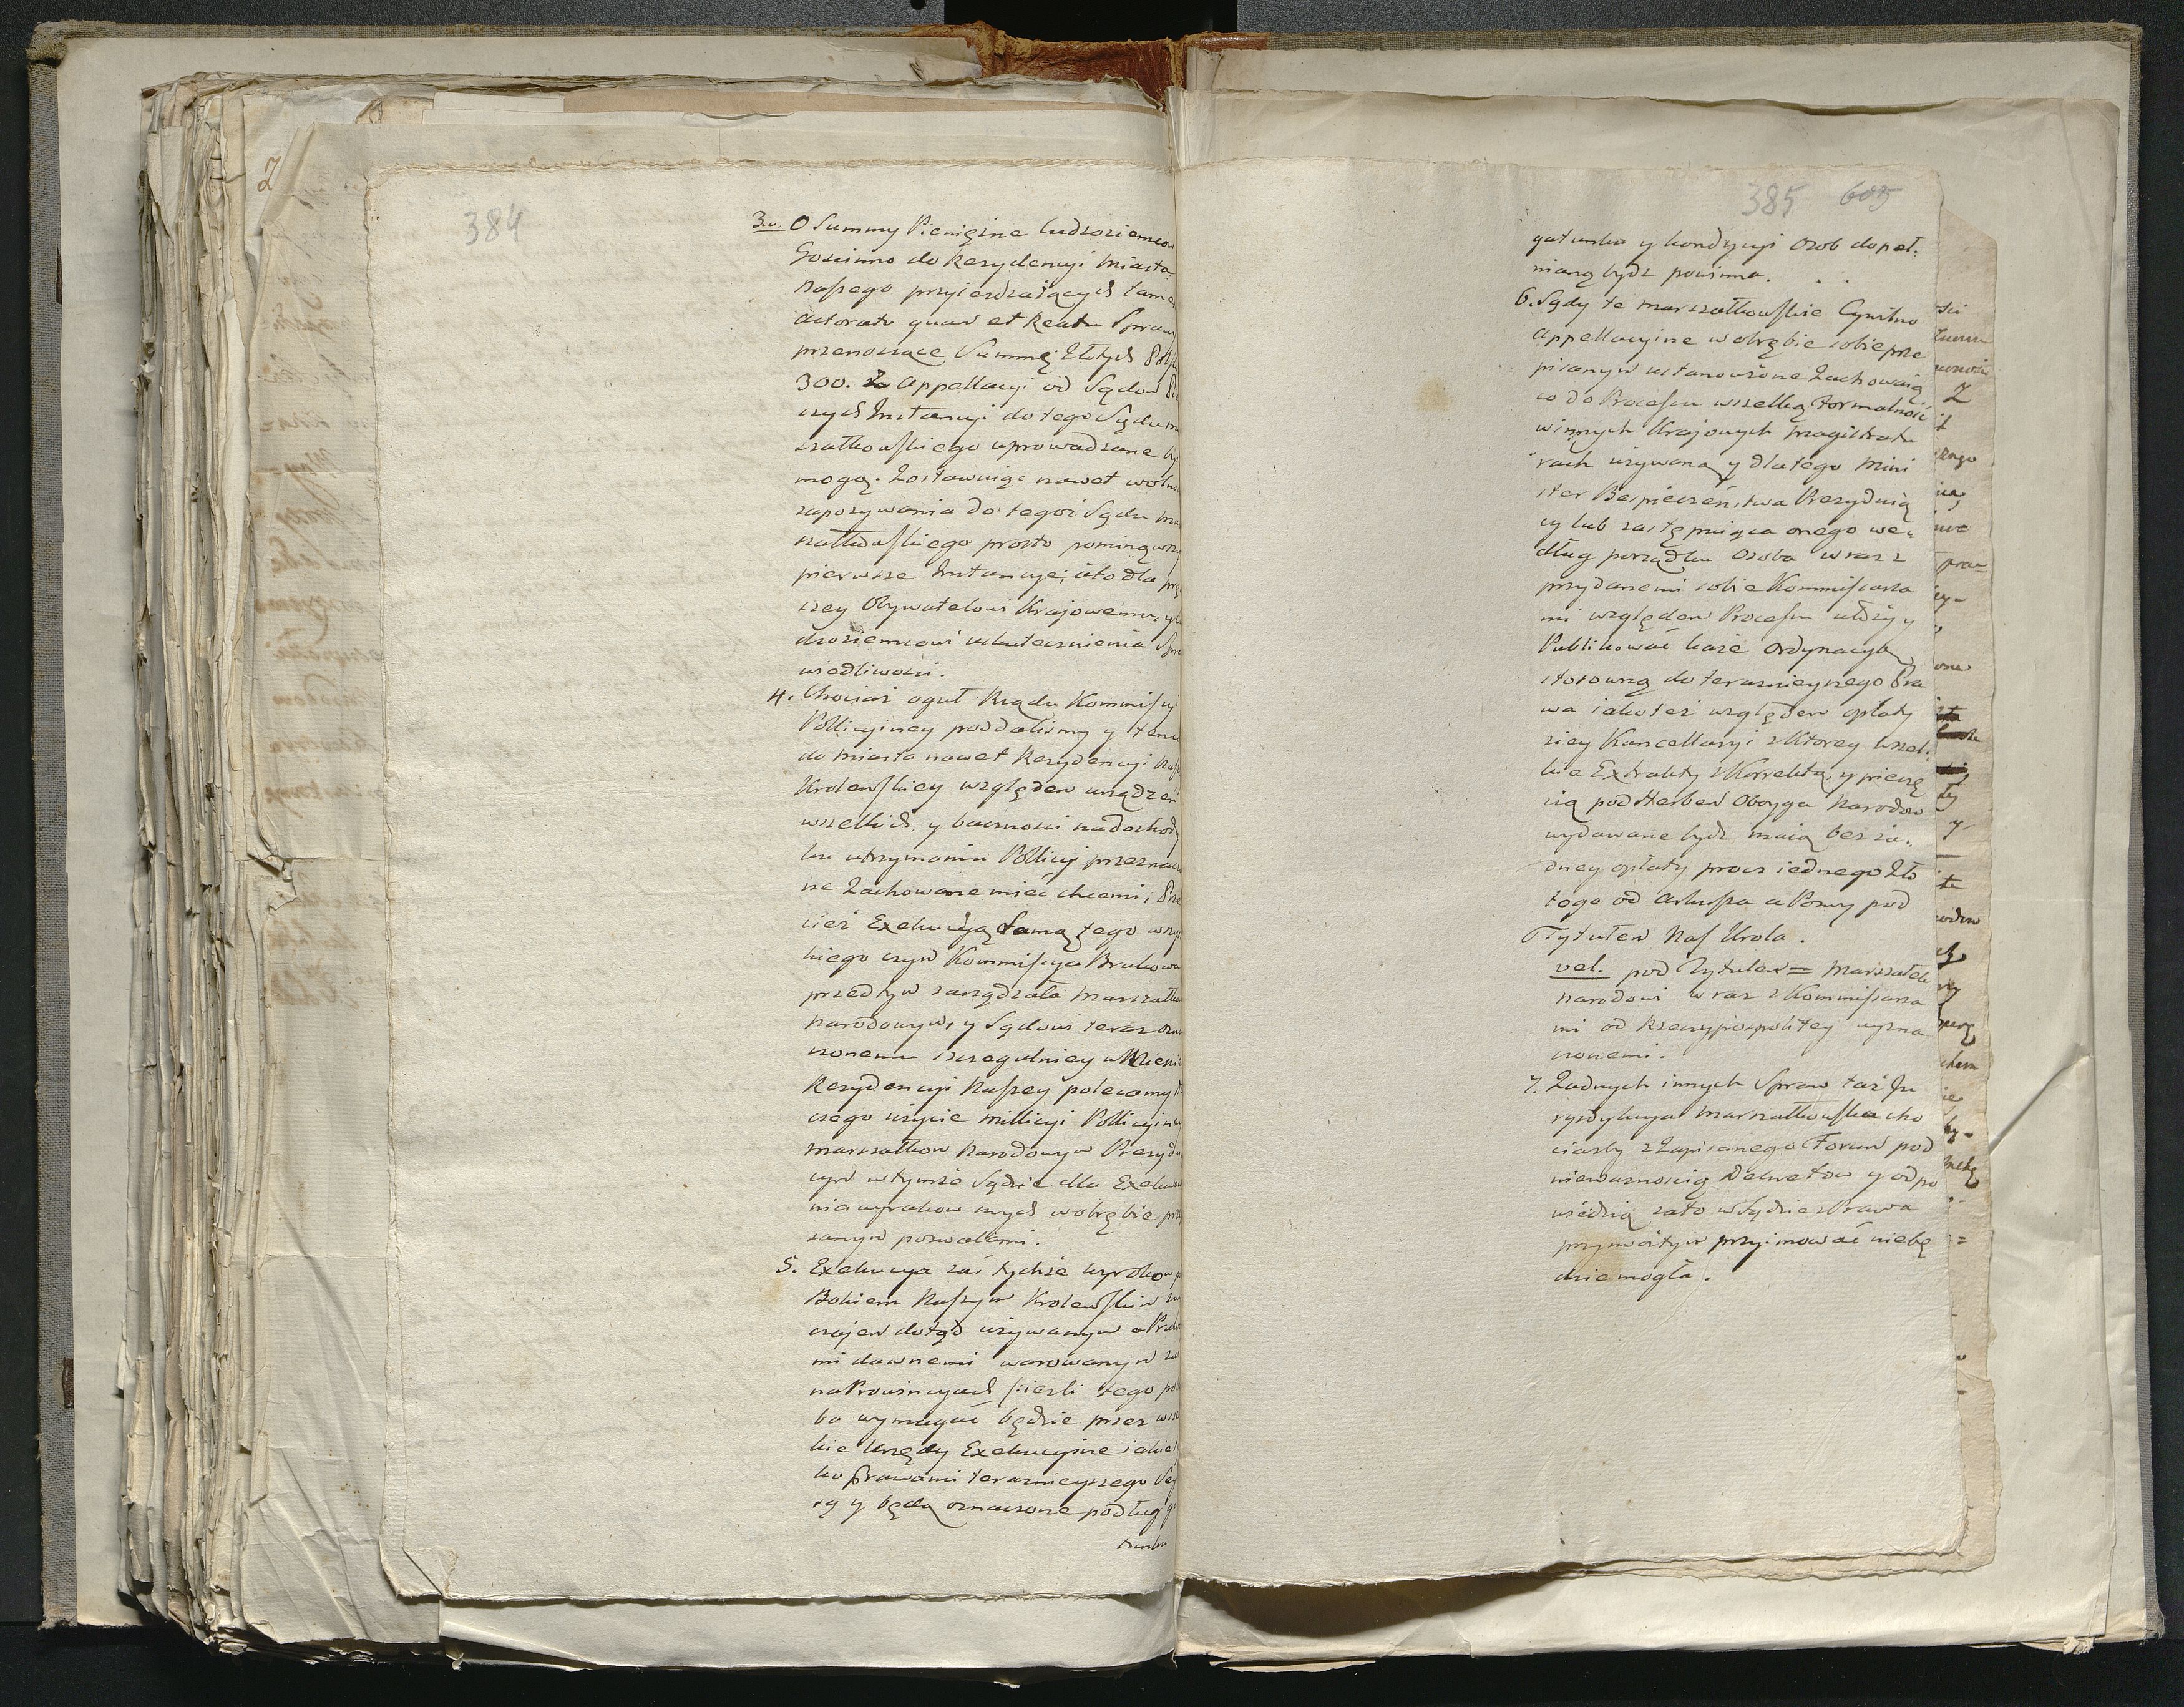 384
3o. O Summy Pieniężne Cudzoziemców
Goscinno do Rezydencyi Miasta
Naszego przyieżdzaiących tam
actoratu quam et Reatu Spraw
przenoszące Summę Złotych Pols
300. za Appellacyi od Sądow Pi
szych Instancyi do tego Sądu M
szałkowskiego wprowadzone by
mogą. Zostawuiąc nawet wolno
zapozywania do tegoż Sądu Ma
szałkowskiego prosto pominąwszy
pierwsze Instancye; á to dla prę
szey Obywatelowi Kraiowemu, y C
dzoziemcowi uskutecznienia Spra
wiedliwosci.
4. Chociaż oguł Rządu Kommissyi
Pollicyiney poddalismy y temu
do Miasta nawet Rezydencyi Nasz
Krolewskiey względem urządzeń
wszelkich, y baczności na dochody
ku utrzymaniu Pollicyi przeznaczo
ne Zachowane mieć chcemi; Prze
cież Exekucyą samą tego wszy
kiego czym Kommissya Brukowa
przedtym zarządzała Marszałkom
Narodowym, y Sądowi teraz ozna
czonemu szczegulniey w Mieście
Rezydencyi Naszey polecamy d
czego użycie Millicyi Pollicyiney
Marszałkom Narodowym Prezydu
cym w tymże Sądzie dla Exekwo
nia wyrokow swych w obrębie prze
sanym pozwalami.
5. Exekucya zaś tychże wyrokow p
Bokiem Naszym Krolewskim zw
czajem dotąd używanym a Prawa
mi dawnemi warowanym za
na Prowincyach /:iesli tego po
ba wymagać będzie przez wsze
kie Urzędy Exekucyine iakie
ko Prawami teraznieyszego Sey
są y będą oznaczone podług ga
tunku
385 605
gatunku y kondycyi Osob dopeł:
nianą bydź powinna.
6. Sądy te Marszałkowskie Cywilno
Appellacyine w obrębie sobie prze
pisanym ustanowione Zachowaią
co do Processu wszelką formalność
w innych Kraiowych Magistratu
rach używaną y dlatego Mini
ster Bespieczeństwa Prezyduią
cy lub zastępuiąca onego we:
dług porządku Osoba wraz z
przydanemi sobie Kommissarza
mi względem Processu ułoży y
Publikować każe Ordynacyą
stosowną do teraznieyszego Pra
wa iakoteż względem opłaty
siey Kancellaryi z ktorey wszel:
kie Extrakty z Korrektą, y pieczę
cią pod Herbem Oboyga Narodow
wydawane bydź maią bez ża:
dney opłaty procz iednego Zło
tego od Arkusza a Pozwy pod
Tytułem Nas Krola.
vel. pod Tytulem = Marszałek
Narodowi wraz z Kommissarza
mi od Rzeczypospolitey wyzna
czonemi.
7. Żadnych innych Spraw taż Ju
rysdykcya Marszałkowska cho
ciażby z Zapisanego Forum pod
nieważnością Dekretow y odpo
wiedzią za to w Sądzie z Prawa
przyzwoitym przyimować niebę
dzie mogła.